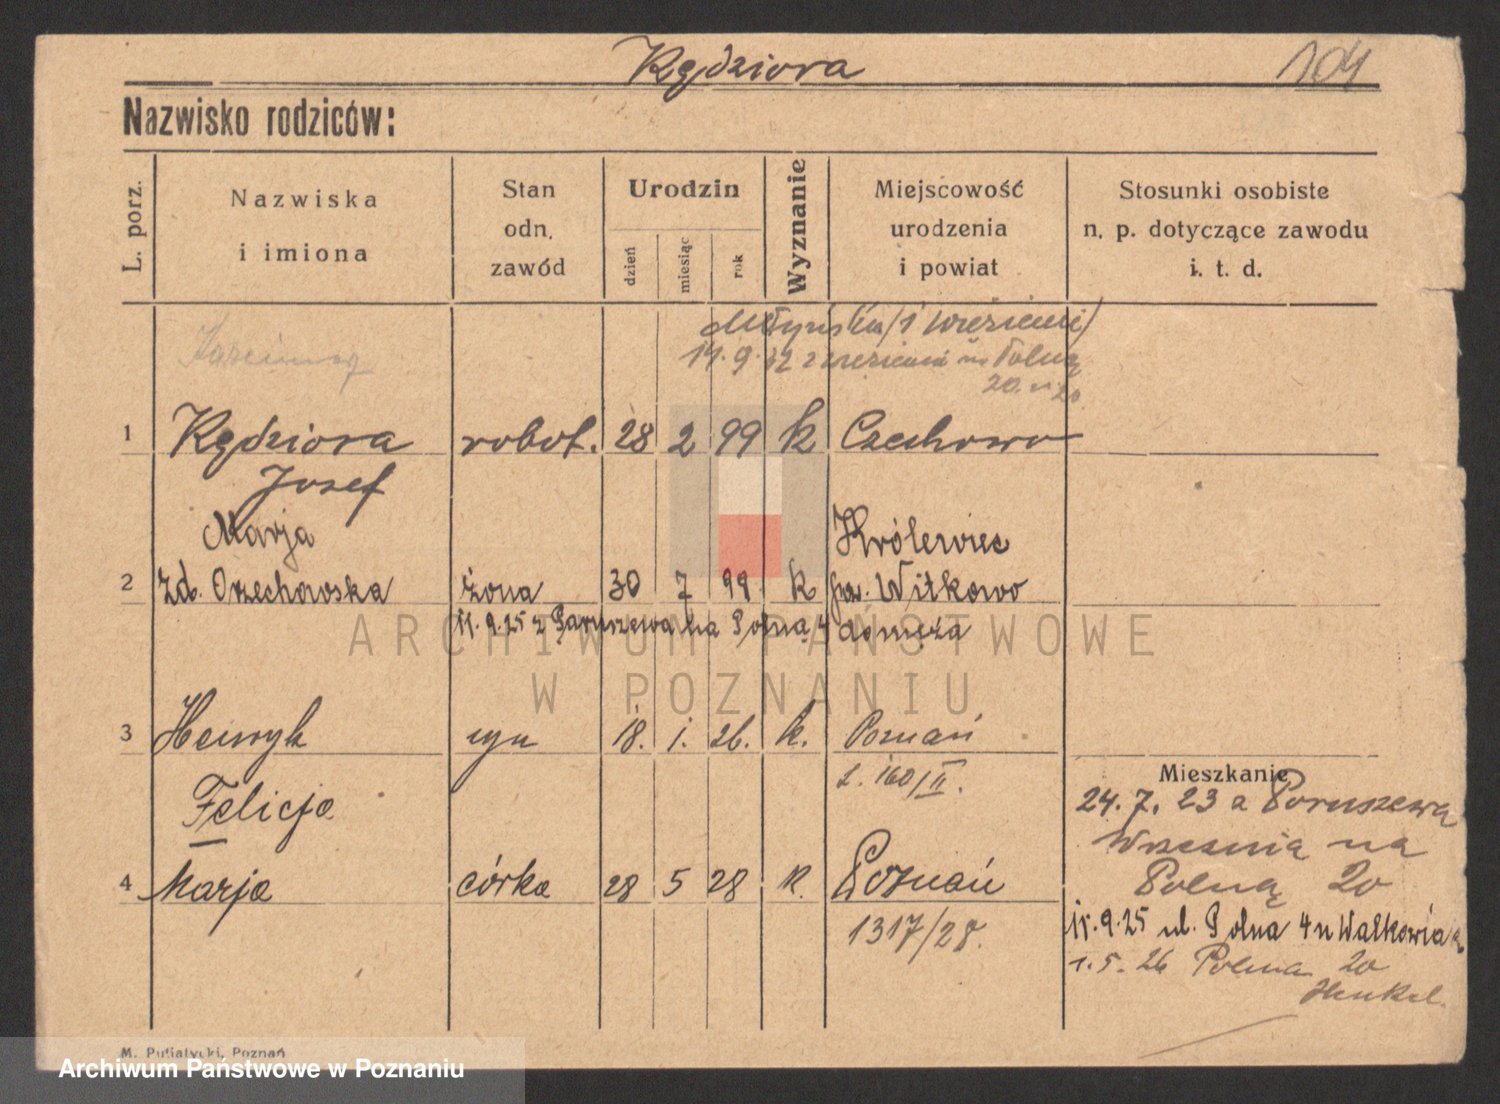 Kędziora
104
Nazwisko rodziców:
L. porz.
Nazwiska
i imiona
Stan
odn.
zawód
Urodzin
dzień
miesiąc
rok
Wyznanie
Miejscowość
urodzenia
i powiat
Stosunki osobiste
n. p. dotyczące zawodu
i. t. d.
Kazimierz
14.9.
Polną
20
1 Kędziora robot. 28 2 99 k Czechowo
Josef
Marja Królewiec
2 Zd. Orzechowska żona 30 7 99 k pow. Witkowo
11.9.25 z Paruszewa na Polną 4 do męża
3 Henryk syn 18. 1. 26. k. Poznań
L. 160/II.
Felicja
4 Marja córka 28 5 28 k. Poznań
1317/28.
Mieszkanie
24.7.23 a Poruszewa
Września na
Polną 20
11.9.25 ul. Polna 4 u Walkowia
1.5.26 Polna 20
Henkel.
ARCHIWUM PAŃSTWOWE
W POZNANIU
M. Putiatycki, Poznań
Archiwum Państwowe w Poznaniu